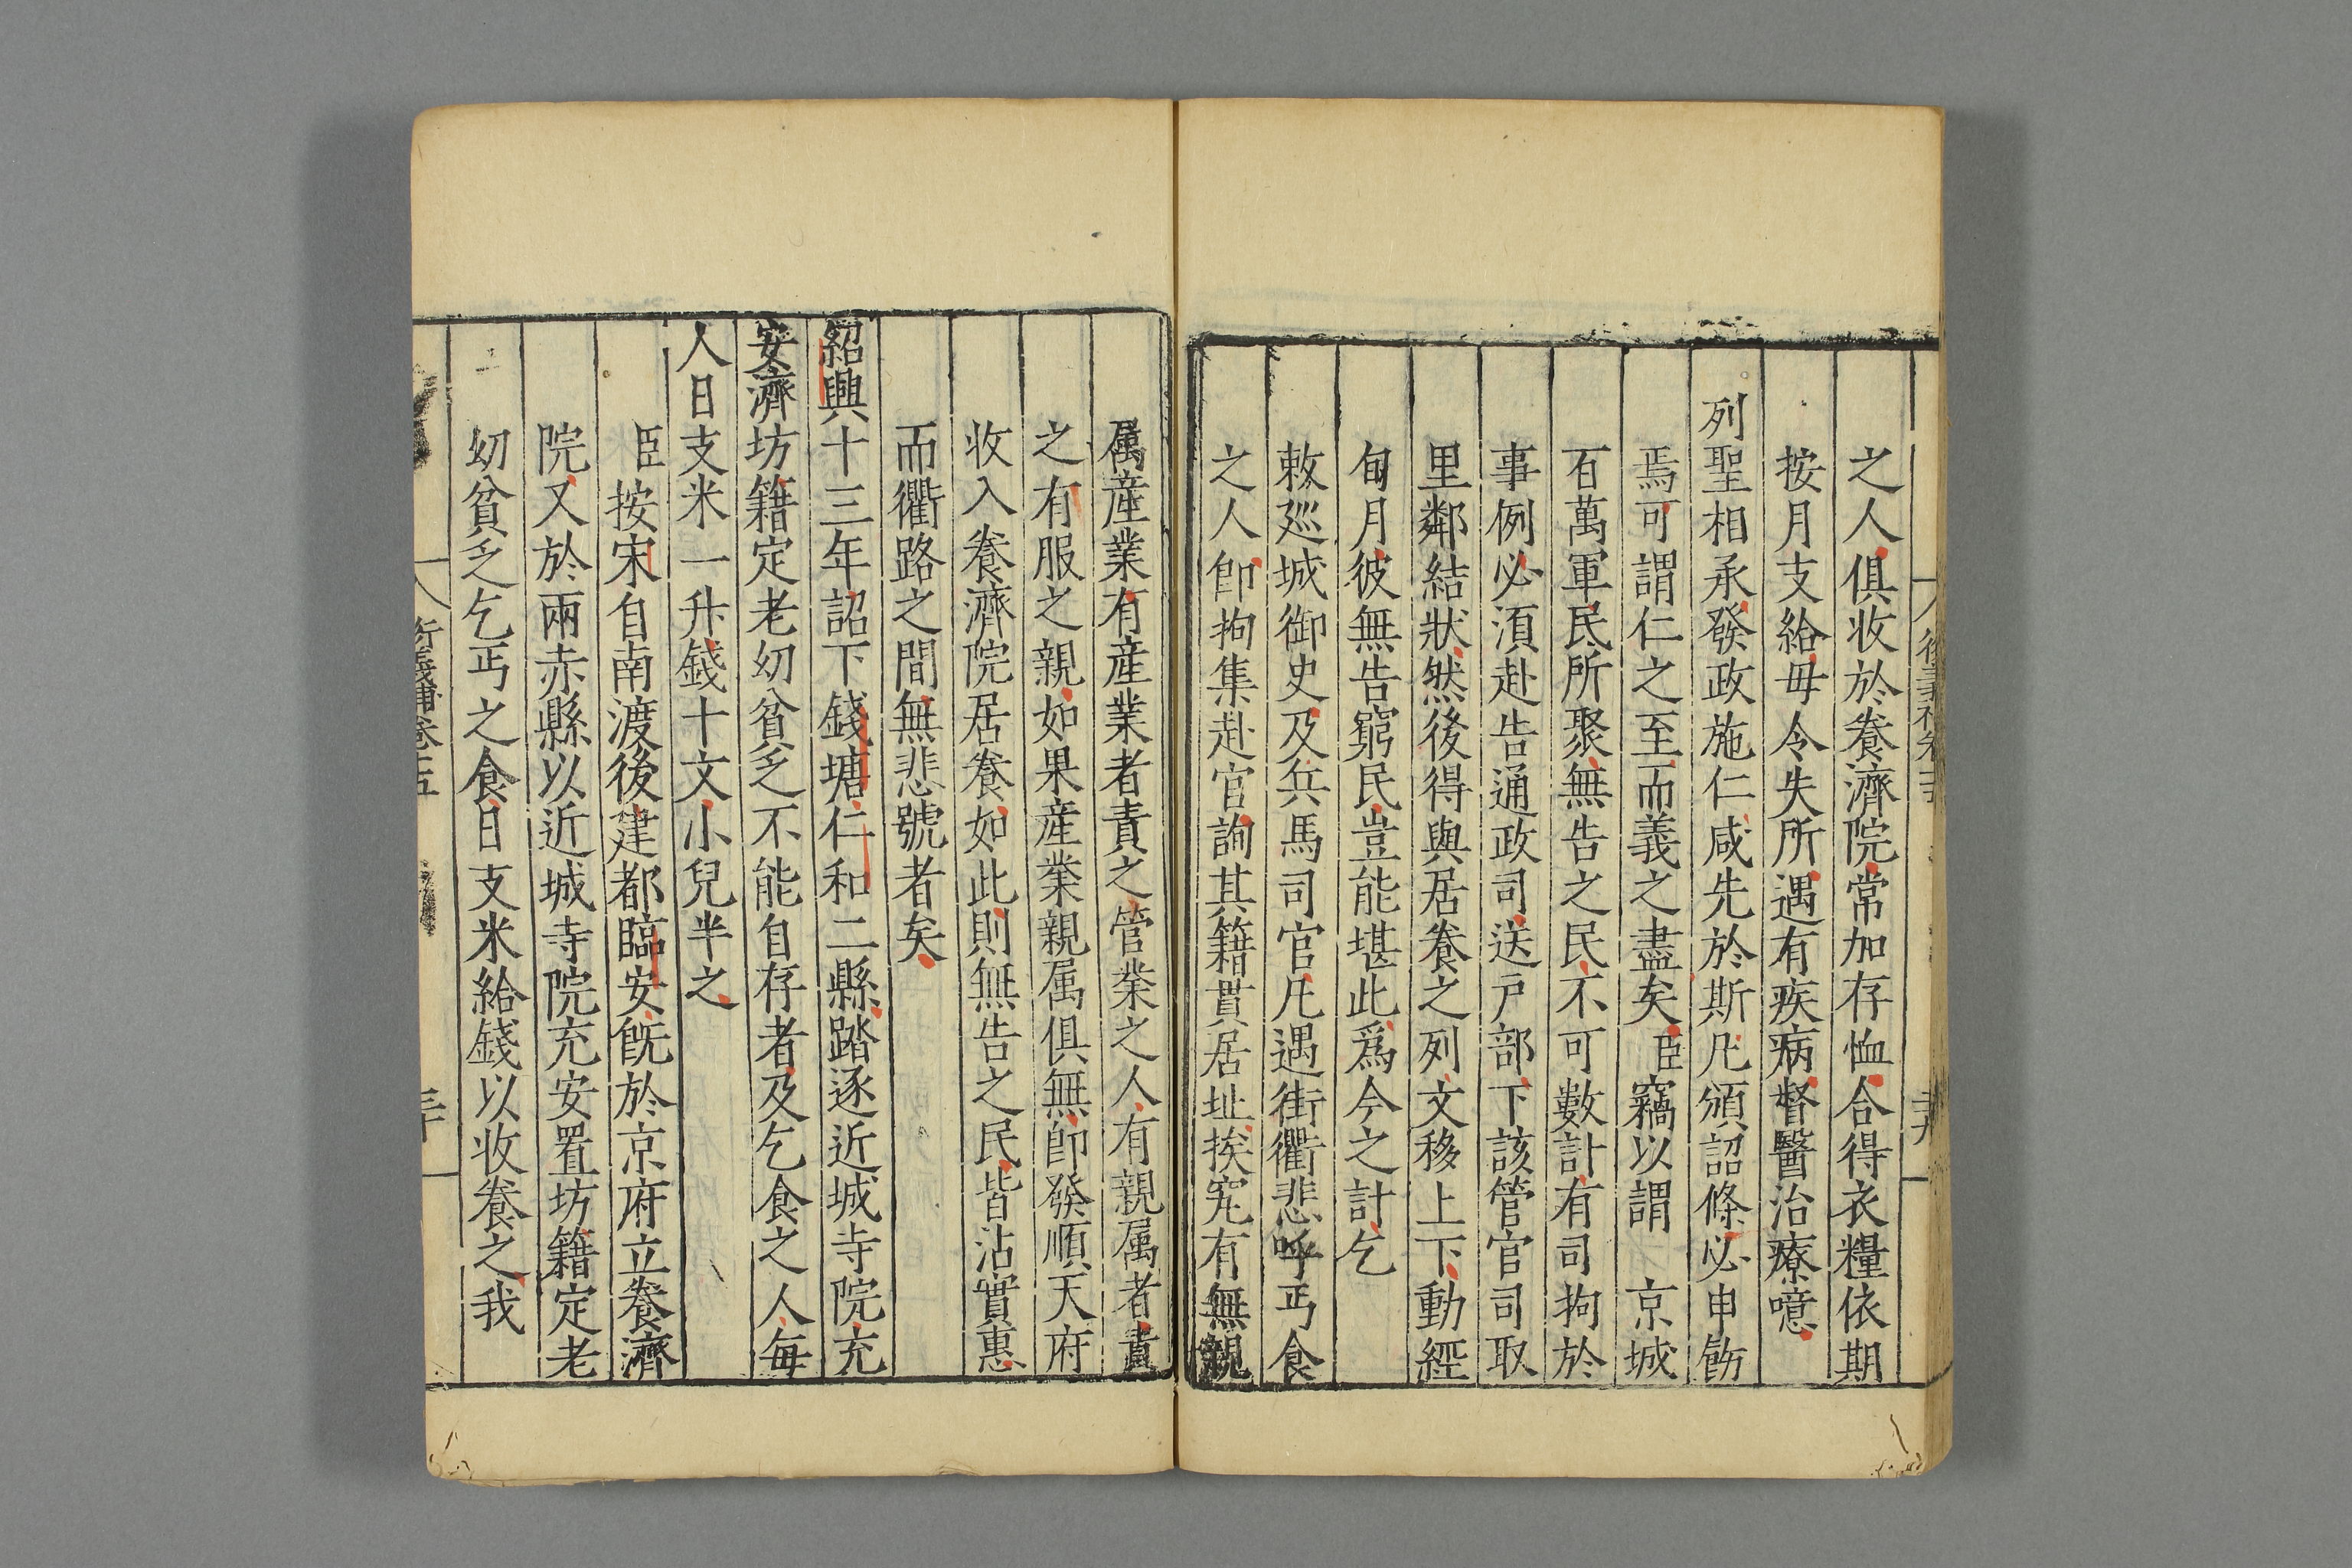 之人俱收於養濟院常加存恤合得衣糧依期
按月支給毋令失所遇有疾病督醫治療噫
列聖相承發政施仁咸先於斯凡頒詔條必申飭
焉可謂仁之至而義之盡矣臣竊以謂 京城
百萬軍民所聚無告之民不可數計有司拘於
事例必須赴告通政司送戸部下該管官司取
里鄰結狀然後得與居養之列文移上下動經
旬月彼無告窮民豈能堪此爲今之計乞
敕廵城御史及兵馬司官凡遇街衢悲呼丐食
之人卽拘集赴官詢其籍貫居址挨究有無親
属産業有産業者責之管業之人有親属者責
之有服之親如果産業親属俱無卽發順天府
收入養濟院居養如此則無告之民皆沾實惠
而衢路之間無悲號者矣
紹興十三年詔下錢塘仁和二縣踏逐近城寺院充
安濟坊籍定老幼貧乏不能自存者及乞食之人每
人日支米一升錢十文小兒半之
臣按宋自南渡後建都臨安旣於京府立養濟
院又於兩赤縣以近城寺院充安置坊籍定老
幼貧乏乞丐之食日支米給錢以收養之我
衍義補卷十五
三十